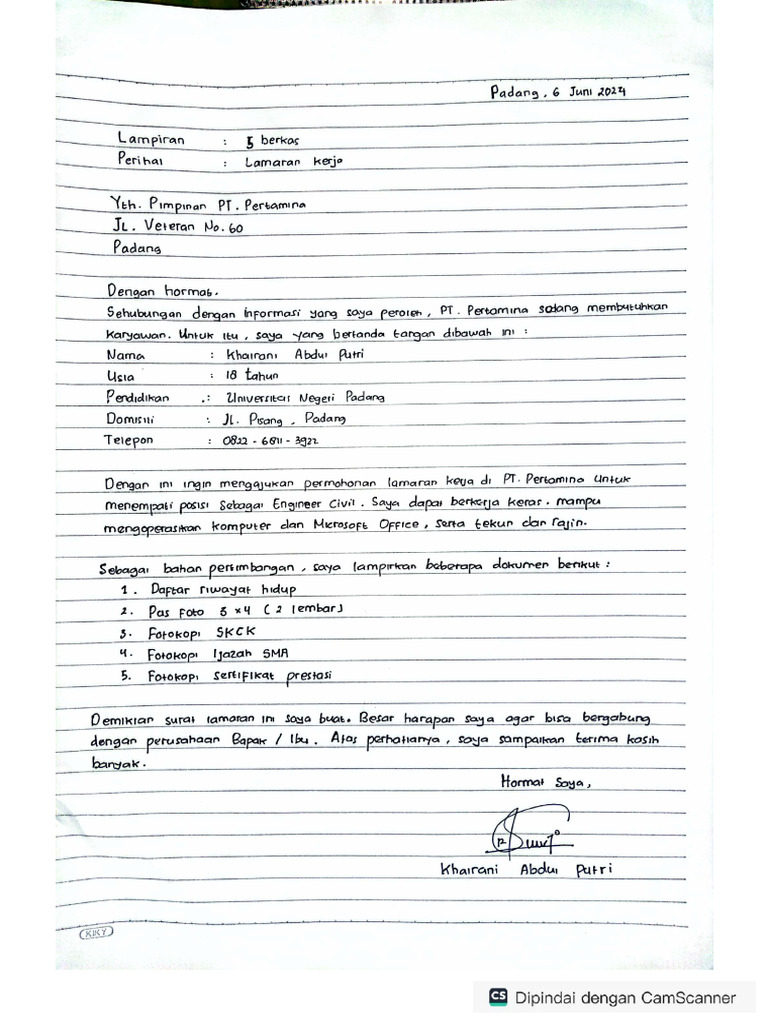 Padang, 6 Juni 2024
Lampiran : 5 berkas
Perihal : Lamaran kerja
Yth. Pimpinan PT. Pertamina
JL. Veteran No. 60
Padang
Dengan hormat.
Sehubungan dengan informasi yang saya peroleh, PT. Pertamina sedang membutuhkan
karyawan. Untuk itu, saya yang bertanda tangan dibawah ini :
Nama : Khairani Abdul Putri
Usia : 18 tahun
Pendidikan : Universitas Negeri Padang
Domisili : JL. Pisang, Padang
Telepon : 0822-6811-3922
Dengan ini ingin mengajukan permohonan lamaran kerja di PT. Pertamina untuk
menempati posisi sebagai Engineer Civil. Saya dapat berkerja keras. mampu
mengoperasikan komputer dan Microsoft Office, serta tekun dan rajin.
Sebagai bahan pertimbangan, saya lampirkan beberapa dokumen berikut :
1. Daftar riwayat hidup
2. Pas foto 3x4 (2 lembar)
3. Fotokopi SKCK
4. Fotokopi Ijazah SMA
5. Fotokopi sertifikat prestasi
Demikian surat lamaran ini saya buat. Besar harapan saya agar bisa bergabung
dengan perusahaan Bapak / Ibu. Atas perhatianya, saya sampaikan terima kasih
banyak.
Hormat Saya,
Khairani Abdul Putri
KIKY
CS Dipindai dengan CamScanner